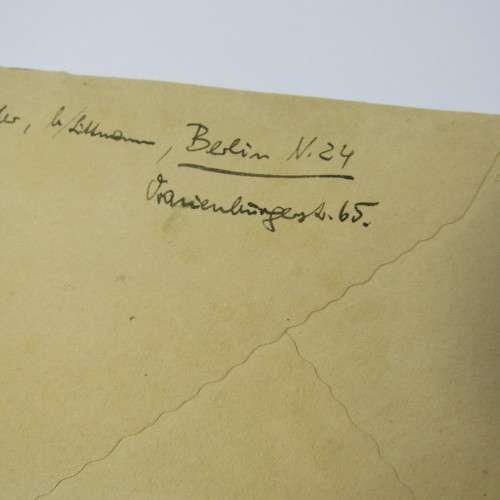 er, b/Littmann, Berlin N.24
Oranienburgerstr. 65.